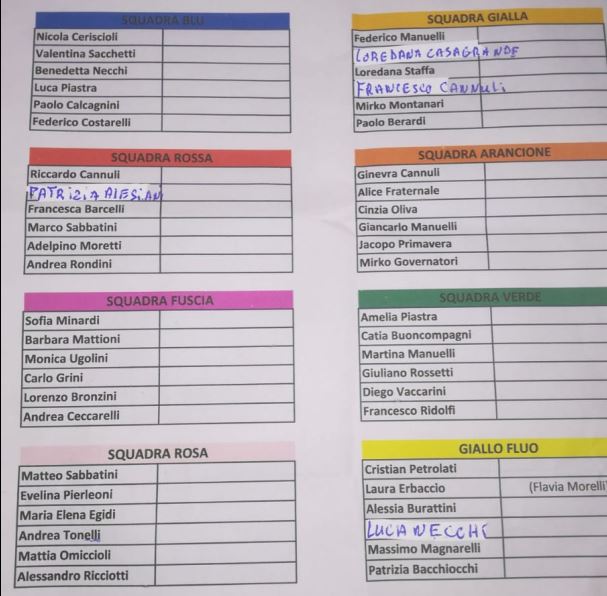 SQUADRA BLU
Nicola Ceriscioli
Valentina Sacchetti
Benedetta Necchi
Luca Piastra
Paolo Calcagnini
Federico Costarelli
SQUADRA GIALLA
Federico Manuelli
LOREDANA CASAGRANDE
Loredana Staffa
FRANCESCO CANNULI
Mirko Montanari
Paolo Berardi
SQUADRA ROSSA
Riccardo Cannuli
PATRIZIA ALESIANI
Francesca Barcelli
Marco Sabbatini
Adelpino Moretti
Andrea Rondini
SQUADRA ARANCIONE
Ginevra Cannuli
Alice Fraternale
Cinzia Oliva
Giancarlo Manuelli
Jacopo Primavera
Mirko Governatori
SQUADRA FUSCIA
Sofia Minardi
Barbara Mattioni
Monica Ugolini
Carlo Grini
Lorenzo Bronzini
Andrea Ceccarelli
SQUADRA VERDE
Amelia Piastra
Catia Buoncompagni
Martina Manuelli
Giuliano Rossetti
Diego Vaccarini
Francesco Ridolfi
SQUADRA ROSA
Matteo Sabbatini
Evelina Pierleoni
Maria Elena Egidi
Andrea Tonelli
Mattia Omiccioli
Alessandro Ricciotti
GIALLO FLUO
Cristian Petrolati
Laura Erbaccio (Flavia Morelli
Alessia Burattini
LUCA NECCHI
Massimo Magnarelli
Patrizia Bacchiocchi